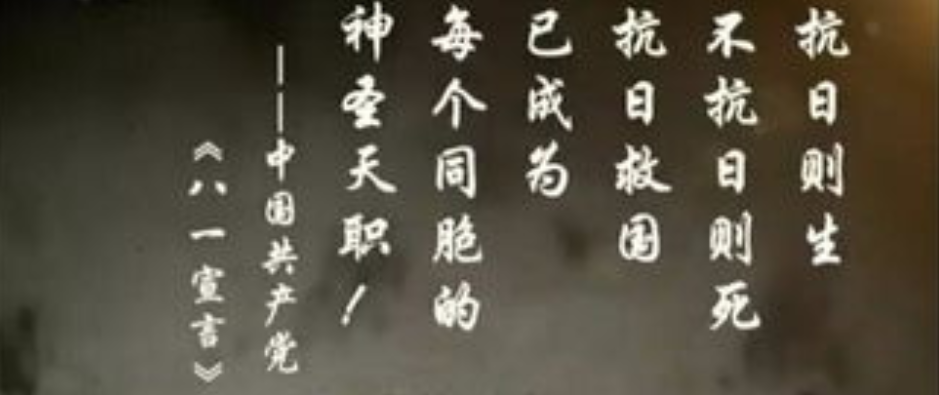 抗日则生
不抗日则死
抗日救国
已成为
每个同胞的
神圣天职！
——中国共产党
《八一宣言》